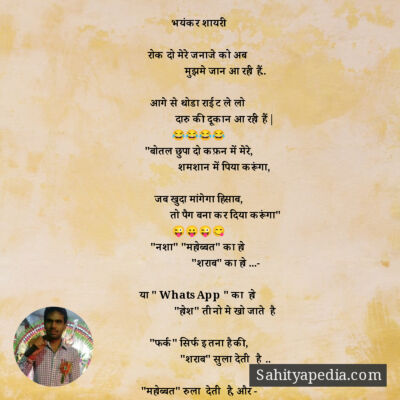 भयंकर शायरी
रोक दो मेरे जनाजे को अब
मुझमे जान आ रही हैं..
आगे से थोडा राईट ले लो
दारु की दूकान आ रही हैं |
😂😂😂😂
"बोतल छुपा दो कफ़न में मेरे,
शमशान में पिया करूंगा,
जब खुदा मांगेगा हिसाब,
तो पैग बना कर दिया करूंगा"
😜😛😜😋
"नशा" "महोब्बत" का हो
"शराब" का हो ...-
या " WhatsApp " का हो
"होश" तीनो मे खो जाते है
"फर्क" सिर्फ इतना है की,
"शराब" सुला देती है ..
"महोब्बत" रुला देती है, और -
Sahityapedia.com